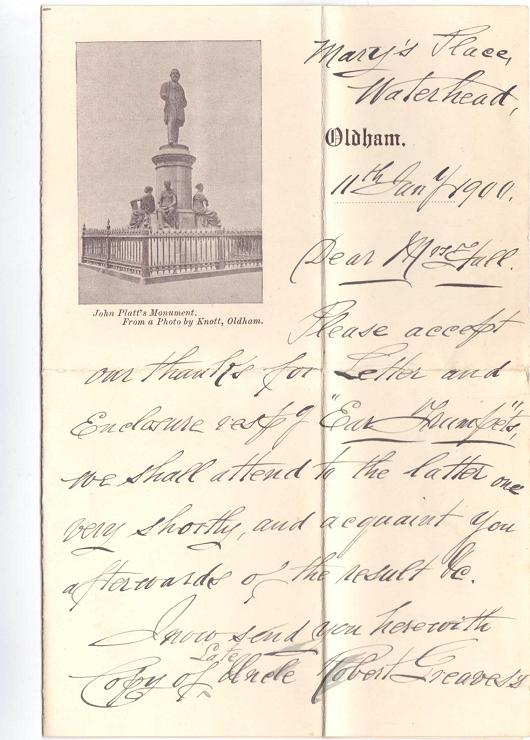 Mary's Place,
Waterhead,
Oldham.
11th Jany 1900.
Dear Mrs Hall.
John Platt's Monument.
From a Photo by Knott, Oldham.
Please accept
our thanks for Letter and
Enclosure respg "Ear Trumpets",
we shall attend to the latter one
very shortly, and acquaint you
afterwards of the result &c.
I now send you herewith
Copy of Late Uncle Robert Greaves's